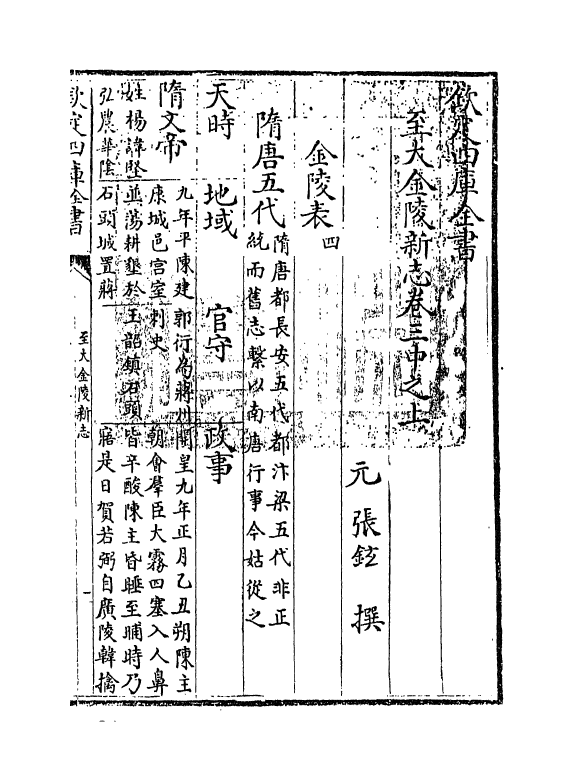 欽定四庫全書
至大金陵新志卷三中之上
元 張鉉 撰
金陵表四
隋唐五代 隋唐都長安五代都汴梁五代非正
統而舊志繫以南唐行事今姑從之
天時 地域 官守 政事
隋文帝 九年平陳建 郭行為蔣州 開皇九年正月乙丑朔陳主
康城邑宫室 刺史 朝會羣臣大霧四塞入人鼻
姓楊諱堅 並蕩耕墾於 王韶鎮石頭 皆辛酸陳主昏睡至晡時乃
弘農華陰 石頭城置蔣 寤是日賀若弼自廣陵韓擒
欽定四庫全書
至大金陵新志
一